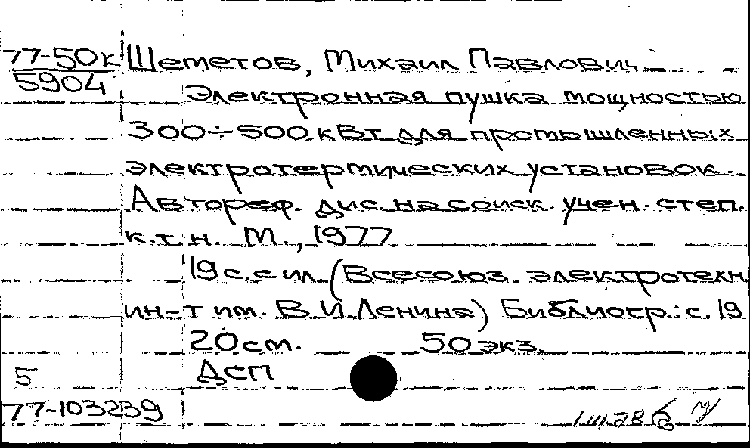 77-50к Шеметов, Михаил Павлович.
5904
Электронная пушка мощностью
300÷500 кВт для промышленных
электротермических установок.
Автореф. дис. на соиск. учен. степ.
к.т.н. М., 1977
19 с. с ил. (Всесоюз. электротехн.
ин-т им. В.И. Ленина) Библиогр.: с. 19
20 см. 50 экз.
5 ДСП
77-103239